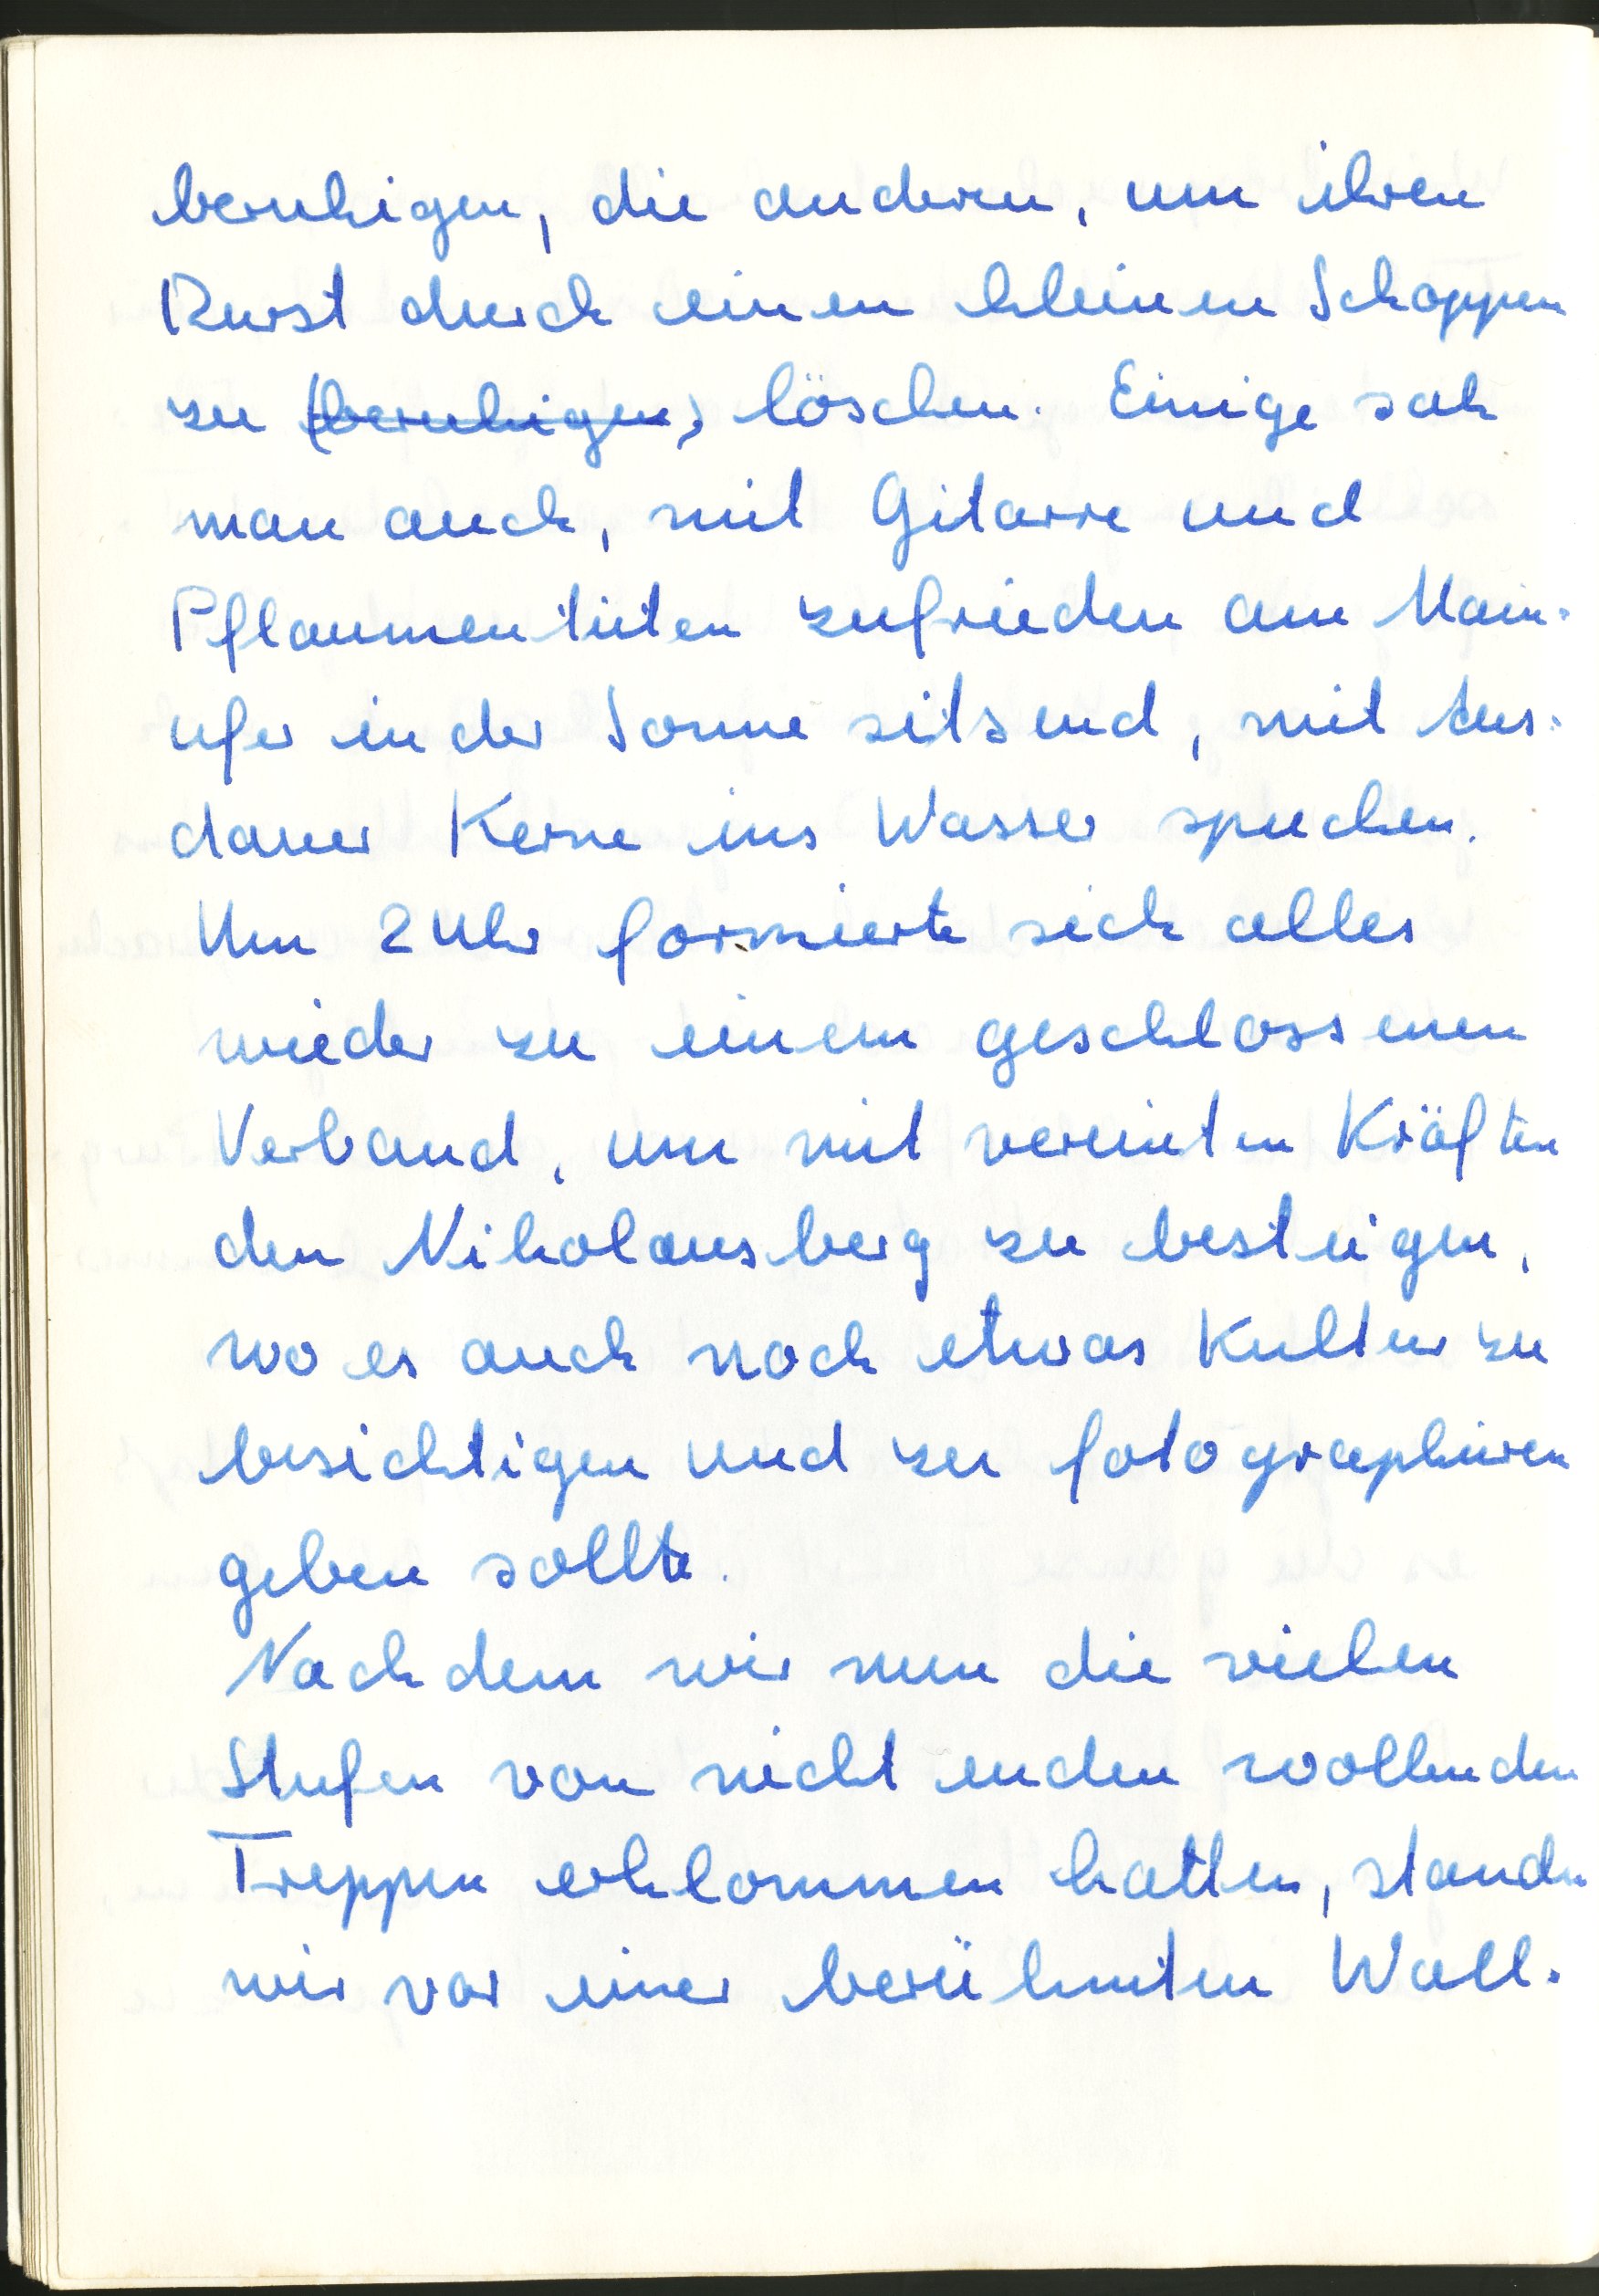 beruhigen, die andern, um ihren
Durst durch einen kleinen Schoppen
zu (beruhigen) löschen. Einige sah
man auch, mit Gitarre und
Pflaumentüten zufrieden am Main-
ufer in der Sonne sitzend, mit Aus-
dauer Kerne ins Wasser spucken.
Um 2 Uhr formierte sich alles
wieder zu einem geschlossenen
Verband, um mit vereinten Kräften
den Nikolausberg zu besteigen,
wo es auch noch etwas Kultur zu
besichtigen und zu fotographieren
geben sollte.
Nachdem wir nun die vielen
Stufen von nicht enden wollenden
Treppen erklommen hatten, standen
wir vor einer berühmten Wall-